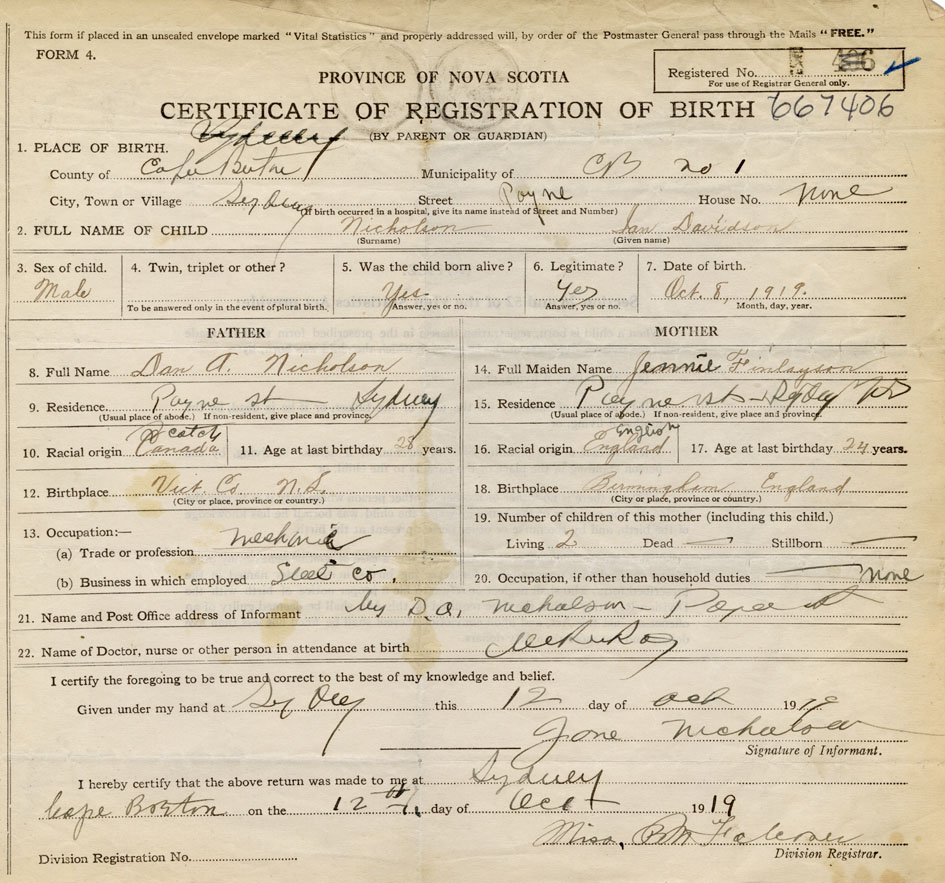 This form if placed in an unsealed envelope marked "Vital Statistics" and properly addressed will, by order of the Postmaster General pass through the Mails "FREE."
FORM 4.
Registered No.
For use of Registrar General only.
PROVINCE OF NOVA SCOTIA
CERTIFICATE OF REGISTRATION OF BIRTH 667406
(BY PARENT OR GUARDIAN)
1. PLACE OF BIRTH.
County of Cape Breton Municipality of CB no 1
City, Town or Village Sydney Street Payne House No. none
(If birth occurred in a hospital, give its name instead of Street and Number)
2. FULL NAME OF CHILD Nicholson Ian Davidson
(Surname) (Given name)
3. Sex of child. 4. Twin, triplet or other? 5. Was the child born alive? 6. Legitimate? 7. Date of birth.
Male Yes Yes Oct. 8, 1919.
To be answered only in the event of plural birth. Answer, yes or no. Answer, yes or no. Month, day, year.
FATHER MOTHER
8. Full Name Dan A. Nicholson 14. Full Maiden Name Jennie Finlayson
9. Residence. Payne st Sydney 15. Residence Payne st Sydney
(Usual place of abode.) If non-resident, give place and province. (Usual place of abode.) If non-resident, give place and province.
Scotch English
10. Racial origin Canada 11. Age at last birthday 28 years. 16. Racial origin England 17. Age at last birthday 24 years.
12. Birthplace Vict. Co N.S. 18. Birthplace Birmingham England
(City or place, province or country.) (City or place, province or country.)
13. Occupation:— 19. Number of children of this mother (including this child.)
(a) Trade or profession Living 2 Dead — Stillborn —
(b) Business in which employed Steel Co. 20. Occupation, if other than household duties none
21. Name and Post Office address of Informant by D.A. Nicholson -
22. Name of Doctor, nurse or other person in attendance at birth
I certify the foregoing to be true and correct to the best of my knowledge and belief.
Given under my hand at Sydney this 12 day of Oct 1919
Nicholson
Signature of Informant.
I hereby certify that the above return was made to me at Sydney
Cape Breton on the 12th day of Oct 1919
Miss
Division Registrar.
Division Registration No.